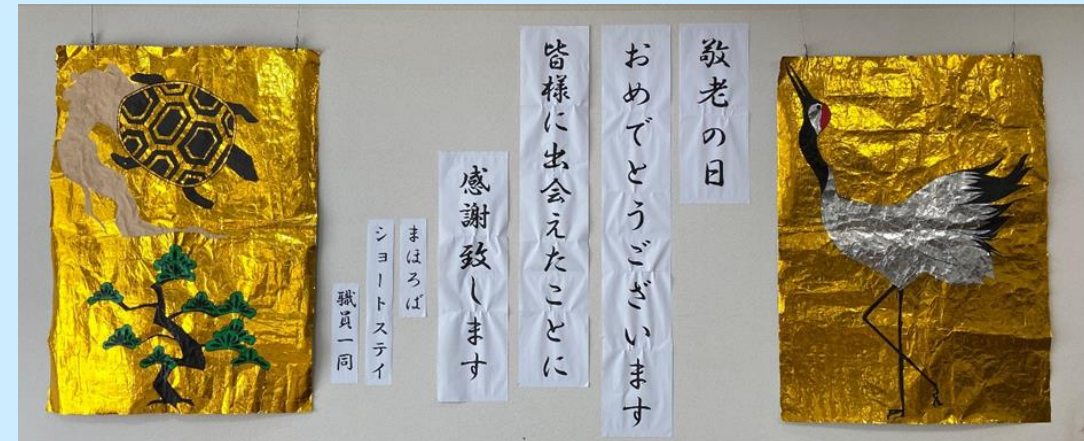 敬老の日
おめでとうございます
皆様に出会えたことに
感謝致します
まほろば
ショートステイ
職員一同